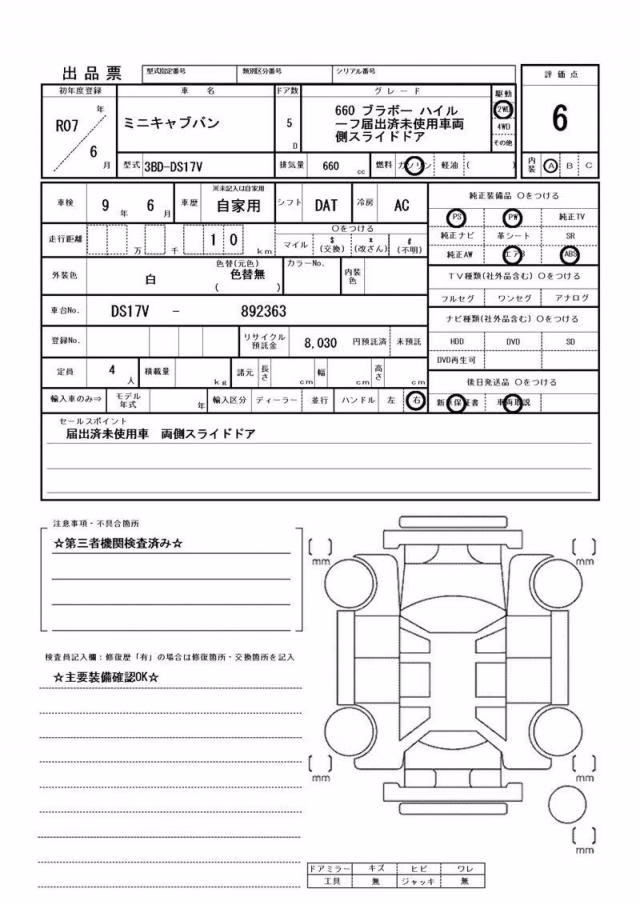 出品票
型式指定番号 類別区分番号 シリアル番号
評価点
初年度登録 車名 ドア数 グレード 駆動
R07 年 6 月
ミニキャブバン
5 D
660 ブラボー ハイル
ーフ届出済未使用車両
側スライドドア
2WD
4WD
その他
6
型式 3BD-DS17V 排気量 660 cc 燃料 ガソリン 軽油 ( )
内装 A B C
車検 9 年 6 月 車歴 ※未記入は自家用 自家用 シフト DAT 冷房 AC
走行距離 万 千 1 0 km
○をつける
マイル $ (交換) x (改ざん) # (不明)
外装色 白 色替(元色) 色替無 ( ) カラーNo. 内装色
車台No. DS17V - 892363
登録No. リサイクル預託金 8,030 円預託済 未預託
定員 4 人 積載量 kg 諸元 長さ cm 幅 cm 高さ cm
輸入車のみ⇒ モデル年式 年 輸入区分 ディーラー 並行 ハンドル 左 右
純正装備品 ○をつける
PS PW 純正TV
純正ナビ 革シート SR
純正AW エアB ABS
TV種類(社外品含む) ○をつける
フルセグ ワンセグ アナログ
ナビ種類(社外品含む) ○をつける
HDD DVD SD
DVD再生可
後日発送品 ○をつける
新車保証書 車両取説
セールスポイント
届出済未使用車 両側スライドドア
注意事項・不具合箇所
☆第三者機関検査済み☆
検査員記入欄：修復歴「有」の場合は修復箇所・交換箇所を記入
☆主要装備確認OK☆
mm mm
mm mm
mm
ドアミラー キズ ヒビ ワレ
工具 無 ジャッキ 無